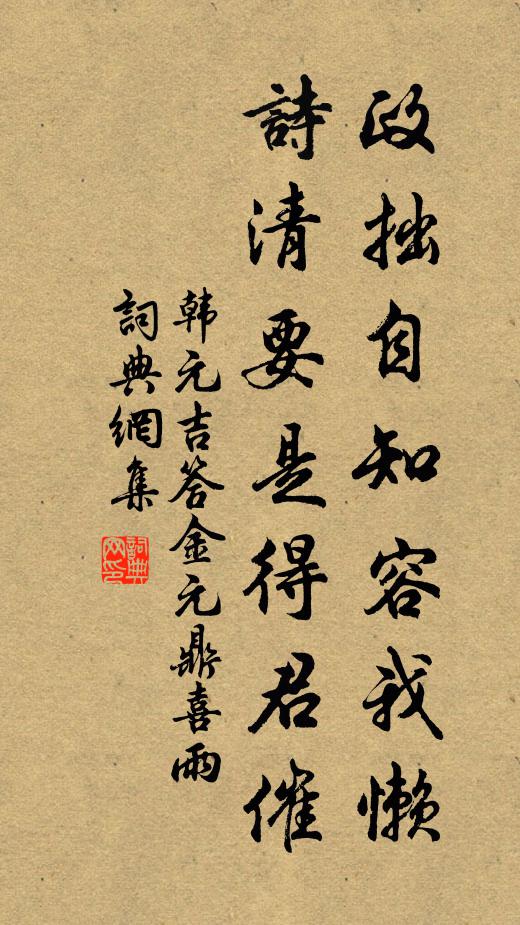 政拙自知容我懒
詩清要是得君催
韩元吉答金元鼎喜雨
詞典網集
詞典网印